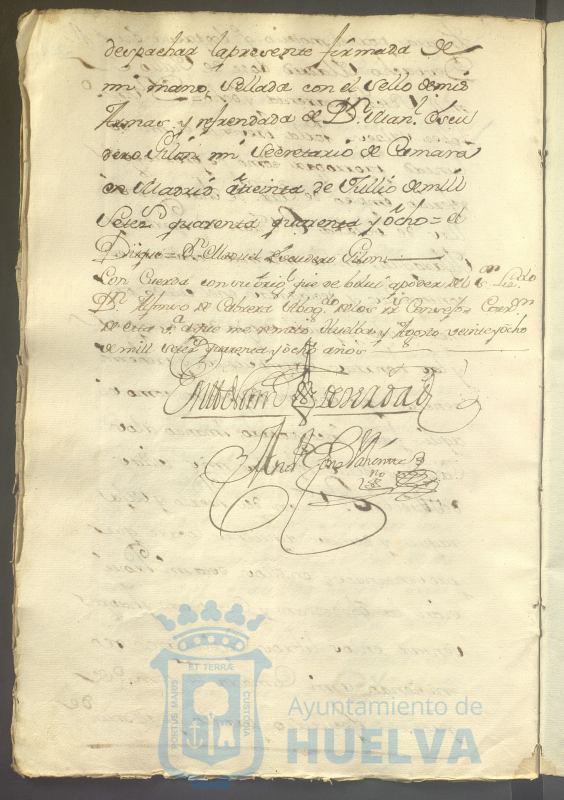 despachar la presente firmada de
mi mano, Sellada con el Sello de mis
Armas y refrendada de Dn. Man.l Escu
dero Gilon mi Secretario de Camara
en Madrid a treinta de Jullio de mill
Setez.s quarenta quarenta y ocho = el
Duque = Dn. Manuel Escudero Gilon
Con Cuerda con su orig.l que se bolvio a poder del s.or Lic.do
Dn. Alfonso de Cabrera Abog.do de los R.s Consejos Corr.or
de esta v.a a que me remito Huelva y Agosto veinte y ocho
de mill setez.s quarenta y ocho años
En testim.o de verdad
Jose
no
ET TERRÆ
PORTUS MARIS
CUSTODIA
Ayuntamiento de
HUELVA